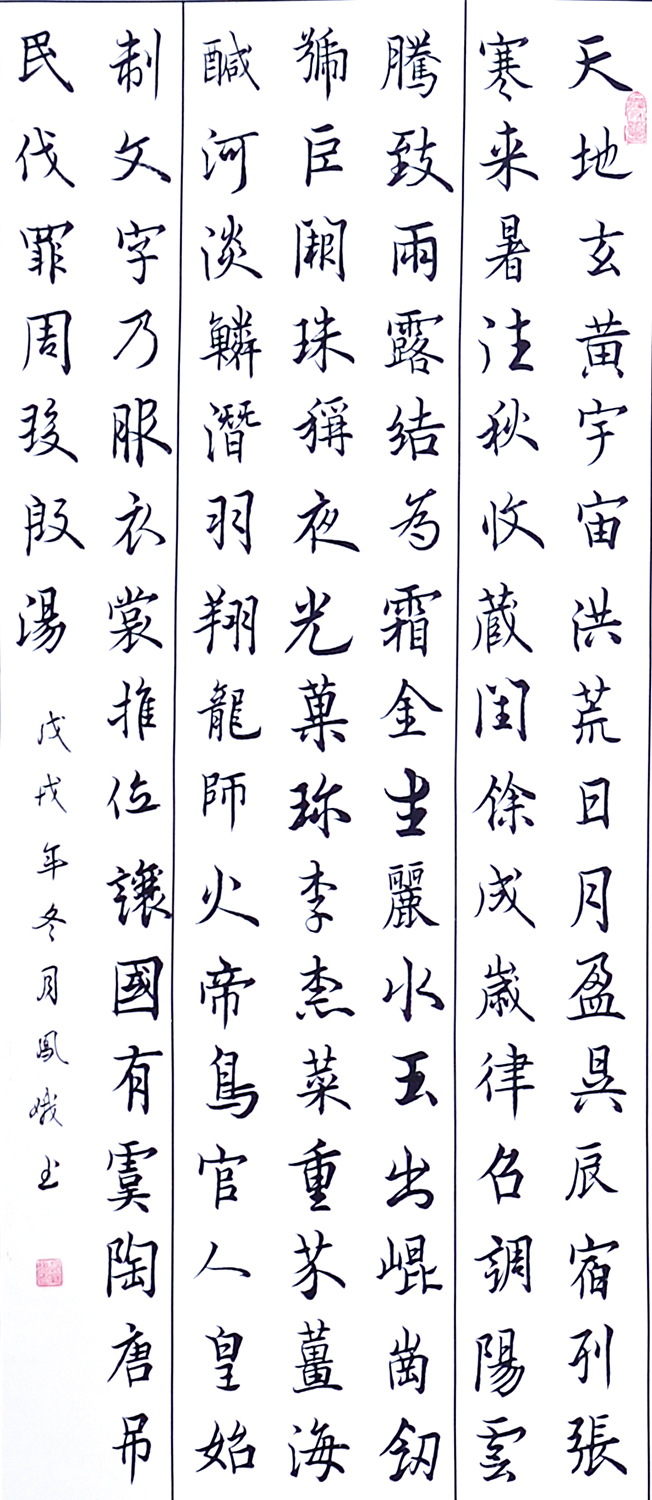 天地玄黄宇宙洪荒日月盈昃辰宿列張
寒来暑往秋收蔵閏餘成歲律召調陽雲
騰致雨露結為霜金生麗水玉出崐崗釼
號巨闕珠稱夜光菓珍李柰菜重芥薑海
鹹河淡鱗潛羽翔龍師火帝鳥官人皇始
制文字乃服衣裳推位讓國有虞陶唐吊
民伐罪周發殷湯
戊戌年冬月鳳娥书